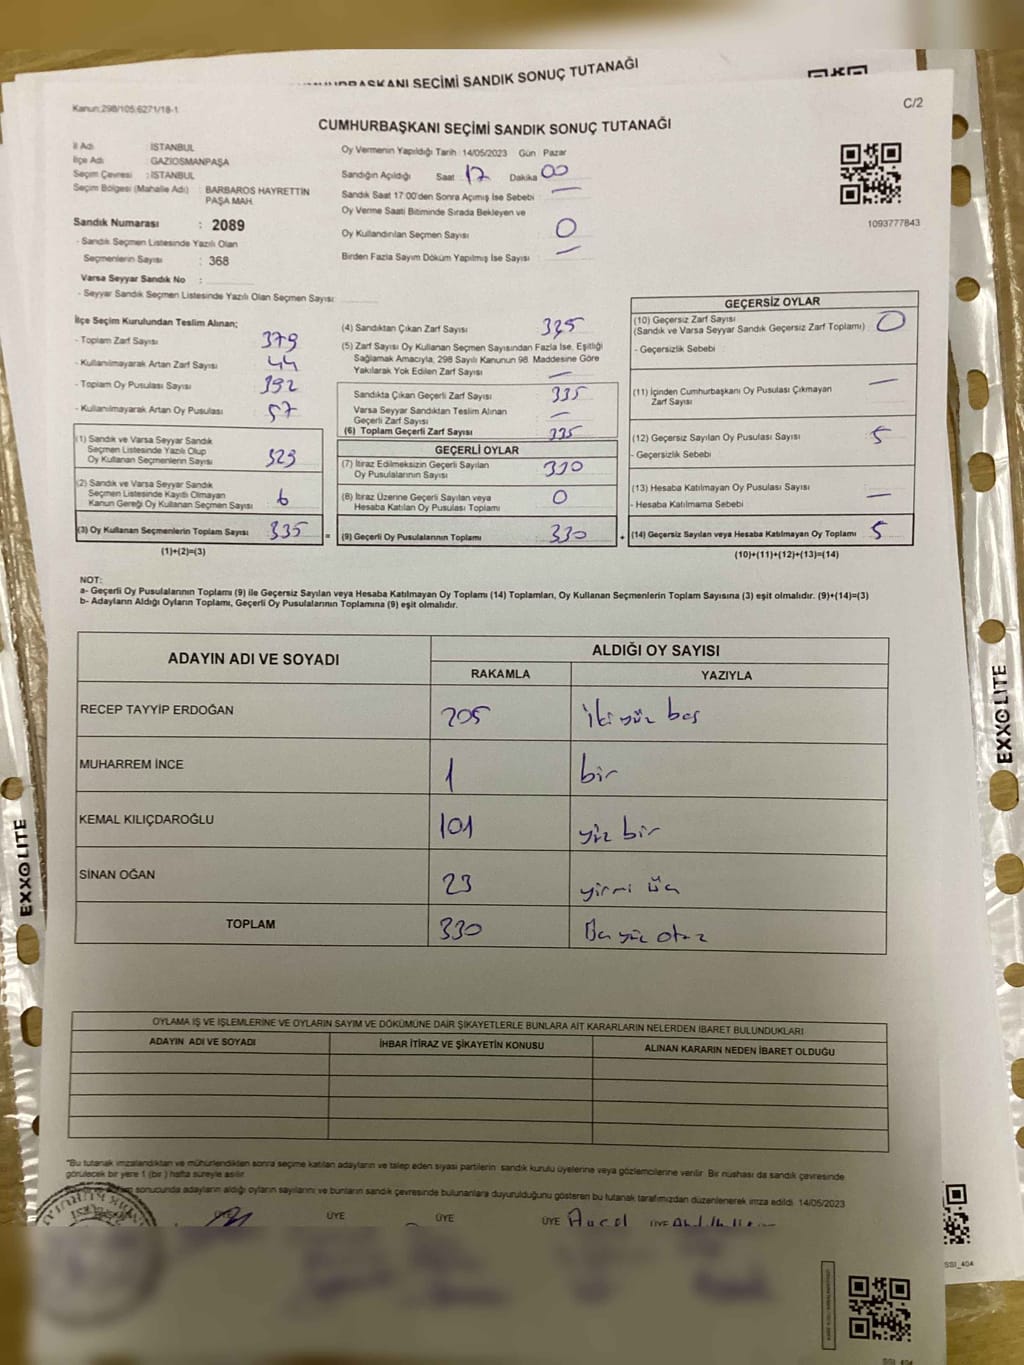 CUMHURBAŞKANI SEÇİMİ SANDIK SONUÇ TUTANAĞI
Kanun:298/105,6271/18-1
C/2
CUMHURBAŞKANI SEÇİMİ SANDIK SONUÇ TUTANAĞI
İl Adı : İSTANBUL
İlçe Adı : GAZİOSMANPAŞA
Seçim Çevresi : İSTANBUL
Seçim Bölgesi (Mahalle Adı) : BARBAROS HAYRETTİN PAŞA MAH.
Sandık Numarası : 2089
- Sandık Seçmen Listesinde Yazılı Olan
Seçmenlerin Sayısı : 368
Varsa Seyyar Sandık No :
- Seyyar Sandık Seçmen Listesinde Yazılı Olan Seçmen Sayısı:
Oy Vermenin Yapıldığı Tarih :14/05/2023 Gün : Pazar
Sandığın Açıldığı Saat : 17 Dakika : 00
Sandık Saat 17:00'den Sonra Açımış İse Sebebi : —
Oy Verme Saati Bitiminde Sırada Bekleyen ve
Oy Kullandırılan Seçmen Sayısı : 0
Birden Fazla Sayım Döküm Yapılmış İse Sayısı : —
1093777843
İlçe Seçim Kurulundan Teslim Alınan;
- Toplam Zarf Sayısı : 379
- Kullanılmayarak Artan Zarf Sayısı : 44
- Toplam Oy Pusulası Sayısı : 392
- Kullanılmayarak Artan Oy Pusulası : 57
(1) Sandık ve Varsa Seyyar Sandık
Seçmen Listesinde Yazılı Olup
Oy Kullanan Seçmenlerin Sayısı : 329
(2) Sandık ve Varsa Seyyar Sandık
Seçmen Listesinde Kayıtlı Olmayan
Kanun Gereği Oy Kullanan Seçmen Sayısı : 6
(3) Oy Kullanan Seçmenlerin Toplam Sayısı : 335 =
(1)+(2)=(3)
(4) Sandıktan Çıkan Zarf Sayısı : 335
(5) Zarf Sayısı Oy Kullanan Seçmen Sayısından Fazla İse, Eşitliği
Sağlamak Amacıyla, 298 Sayılı Kanunun 98. Maddesine Göre
Yakılarak Yok Edilen Zarf Sayısı : —
Sandıkta Çıkan Geçerli Zarf Sayısı : 335
Varsa Seyyar Sandıktan Teslim Alınan
Geçerli Zarf Sayısı : —
(6) Toplam Geçerli Zarf Sayısı : 335
GEÇERLİ OYLAR
(7) İtiraz Edilmeksizin Geçerli Sayılan
Oy Pusulalarının Sayısı : 330
(8) İtiraz Üzerine Geçerli Sayılan veya
Hesaba Katılan Oy Pusulası Toplamı : 0
(9) Geçerli Oy Pusulalarının Toplamı : 330 +
GEÇERSİZ OYLAR
(10) Geçersiz Zarf Sayısı
(Sandık ve Varsa Seyyar Sandık Geçersiz Zarf Toplamı) : 0
- Geçersizlik Sebebi :
(11) İçinden Cumhurbaşkanı Oy Pusulası Çıkmayan
Zarf Sayısı : —
(12) Geçersiz Sayılan Oy Pusulası Sayısı : 5
- Geçersizlik Sebebi :
(13) Hesaba Katılmayan Oy Pusulası Sayısı : —
- Hesaba Katılmama Sebebi :
(14) Geçersiz Sayılan veya Hesaba Katılmayan Oy Toplamı : 5
(10)+(11)+(12)+(13)=(14)
NOT:
a- Geçerli Oy Pusulalarının Toplamı (9) ile Geçersiz Sayılan veya Hesaba Katılmayan Oy Toplamı (14) Toplamları, Oy Kullanan Seçmenlerin Toplam Sayısına (3) eşit olmalıdır. (9)+(14)=(3)
b- Adayların Aldığı Oyların Toplamı, Geçerli Oy Pusulalarının Toplamına (9) eşit olmalıdır.
ADAYIN ADI VE SOYADI ALDIĞI OY SAYISI
RAKAMLA YAZIYLA
RECEP TAYYİP ERDOĞAN 205 iki yüz beş
MUHARREM İNCE 1 bir
KEMAL KILIÇDAROĞLU 101 yüz bir
SİNAN OĞAN 23 yirmi üç
TOPLAM 330 Üç yüz otuz
OYLAMA İŞ VE İŞLEMLERİNE VE OYLARIN SAYIM VE DÖKÜMÜNE DAİR ŞİKAYETLERLE BUNLARA AİT KARARLARIN NELERDEN İBARET BULUNDUKLARI
ADAYIN ADI VE SOYADI İHBAR İTİRAZ VE ŞİKAYETİN KONUSU ALINAN KARARIN NEDEN İBARET OLDUĞU
"Bu tutanak imzalandıktan ve mühürlendikten sonra seçime katılan adayların ve talep eden siyasi partilerin sandık kurulu üyelerine veya gözlemcilerine verilir. Bir nüshası da sandık çevresinde
görülecek bir yere 1 (bir) hafta süreyle asılır.
sonucunda adayların aldığı oyların sayılarını ve bunların sandık çevresinde bulunanlara duyurulduğunu gösteren bu tutanak tarafımızdan düzenlenerek imza edildi. 14/05/2023
ÜYE ÜYE ÜYE ÜYE Aysel ÜYE
EXXOLITE
EXXOLITE
SSI_404
SSI_404